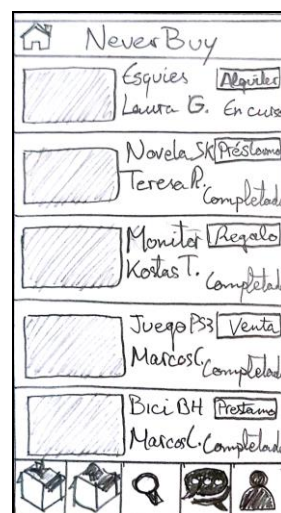 NeverBuy
Esquíes Alquiler
Laura G. En curso
Novela SK Préstamo
Teresa R.
Completado
Monitor Regalo
Kostas T.
Completado
Juego PS3 Venta
Marcos C.
Completado
Bici BH Prestamo
Marcos C. Completado